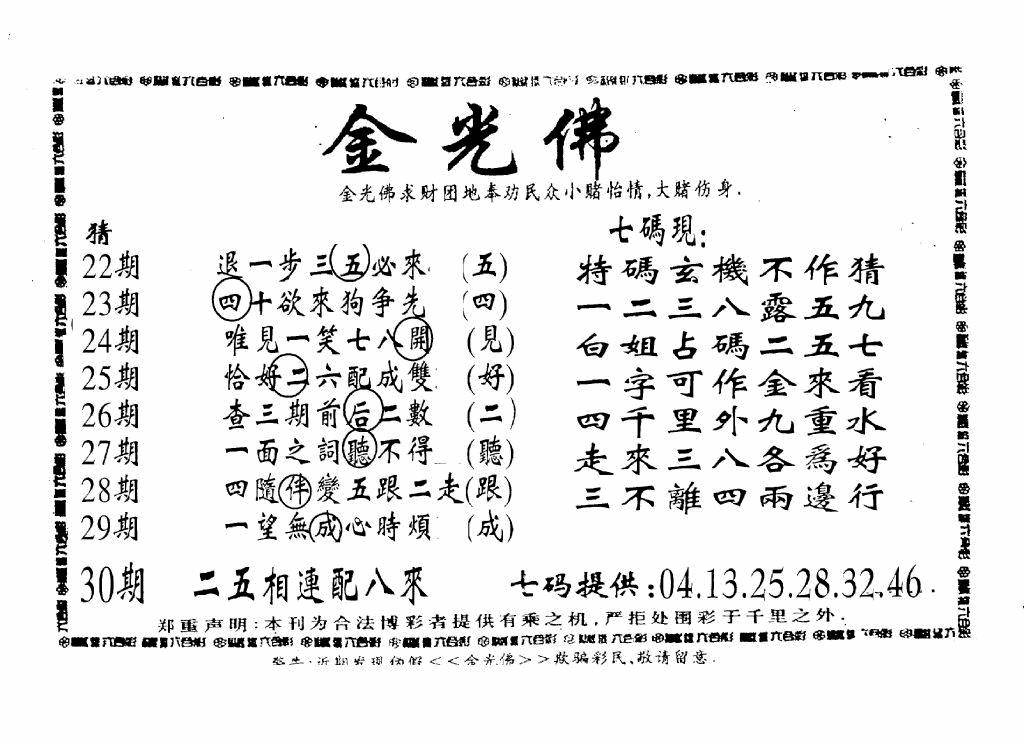 金光佛
金光佛求财团地奉功民众小赌怡情,大赌伤身.
猜
22期 退一步三五必來 (五)
23期 四十欲來狗争先 (四)
24期 唯見一笑七八開 (見)
25期 恰好二六配成雙 (好)
26期 查三期前后二數 (二)
27期 一面之詞聽不得 (聽)
28期 四隨伴變五跟二走(跟)
29期 一望無成心時煩 (成)
七碼現:
特碼玄機不作猜
一二三八露五九
白姐占碼二五七
一字可作金來看
四千里外九重水
走來三八各為好
三不離四兩邊行
30期 二五相連配八來 七码提供:04.13.25.28.32.46.
郑重声明:本刊为合法博彩者提供有乘之机,严拒处围彩于千里之外.
警告:近期发现仿假<<金光佛>>欺骗彩民,敬请留意.